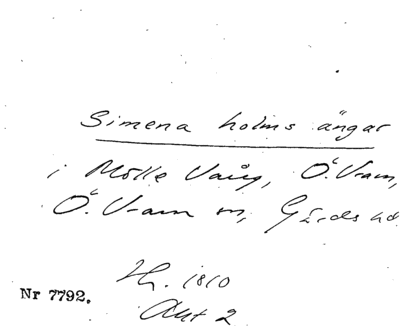 Simena holms ängar
i Mölle Vång, Ö. Vram,
Ö. Vram sn, Gärds hd
Sk. 1810
Akt 2
Nr 7792.